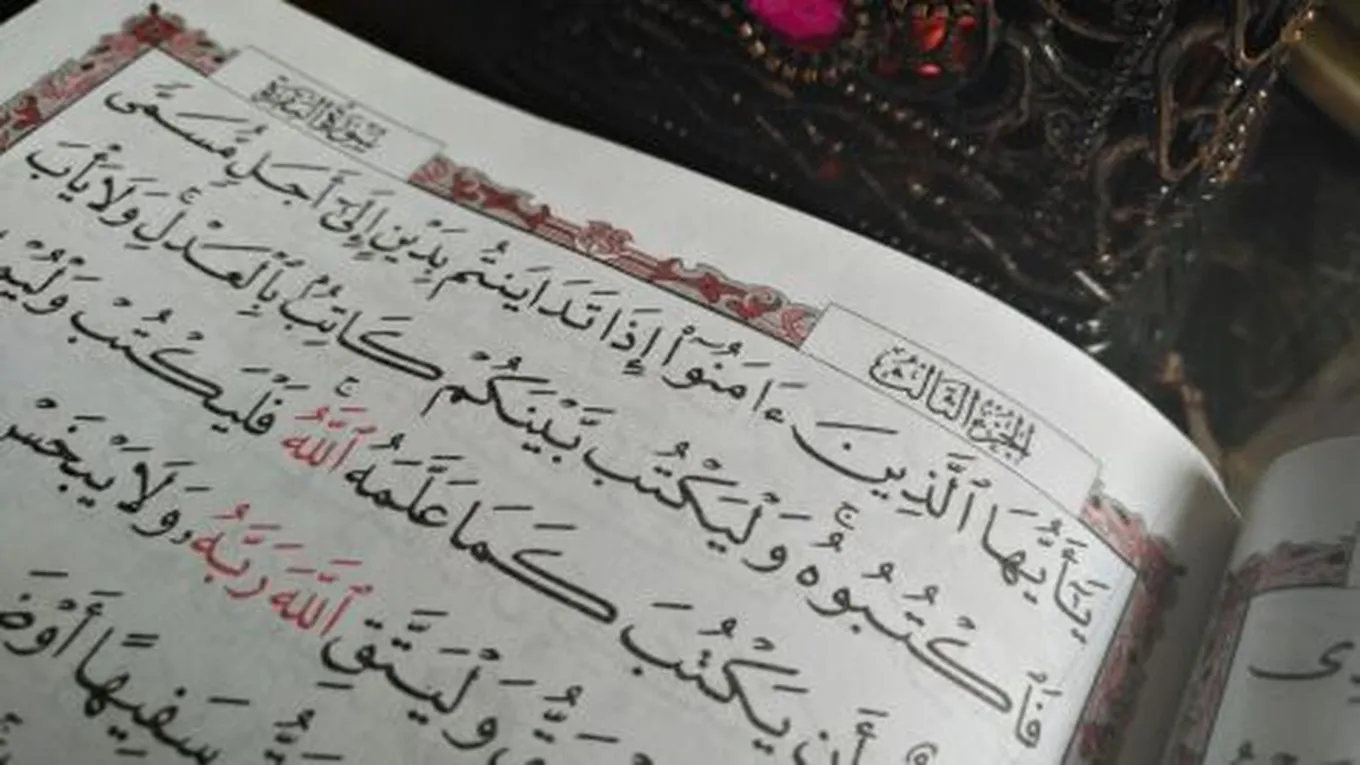 الجزء الثالث
سورة البقرة
يَٰٓأَيُّهَا ٱلَّذِينَ ءَامَنُوٓا۟ إِذَا تَدَايَنتُم بِدَيْنٍ إِلَىٰٓ أَجَلٍ مُّسَمًّى
فَٱكْتُبُوهُ ۚ وَلْيَكْتُب بَّيْنَكُمْ كَاتِبٌۢ بِٱلْعَدْلِ ۚ وَلَا يَأْبَ
أَن يَكْتُبَ كَمَا عَلَّمَهُ ٱللَّهُ ۚ فَلْيَكْتُبْ
وَلْيَتَّقِ ٱللَّهَ رَبَّهُۥ وَلَا يَبْخَسْ
سَفِيهًا أَوْ